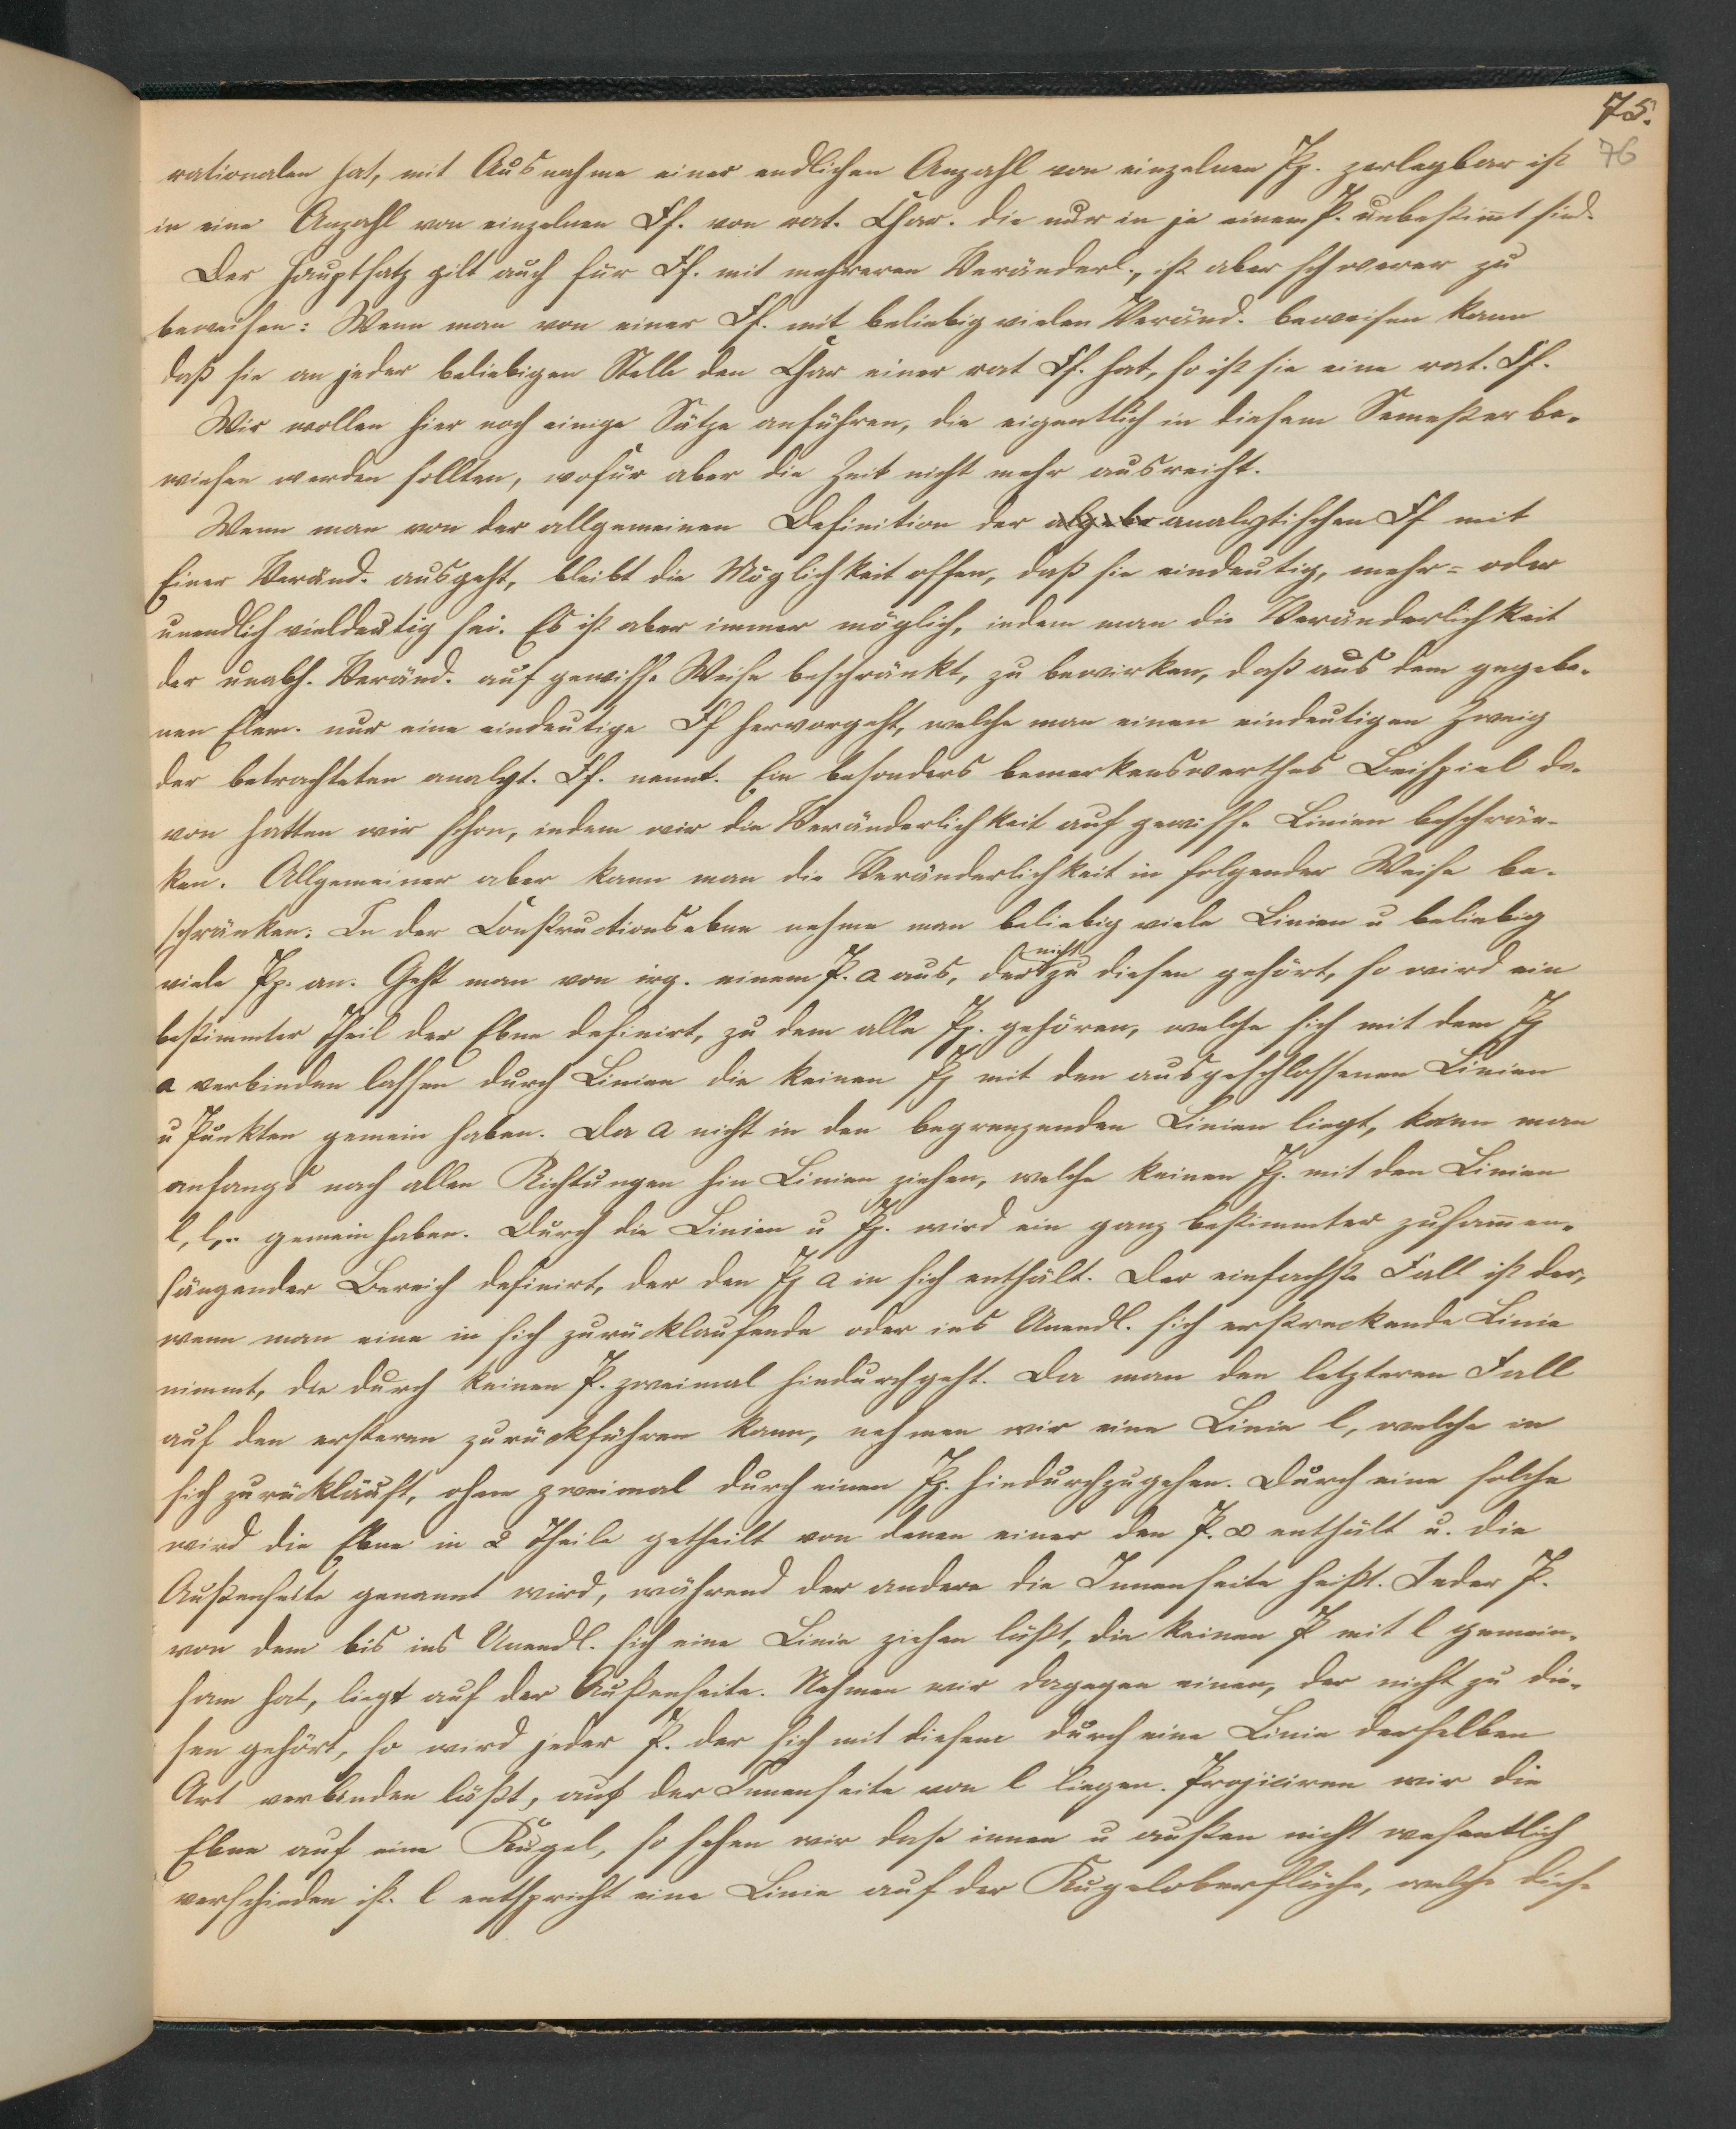 75.
76
rationalen hat, mit Ausnahme einer endlichen Anzahl von einzelnen Pp. zerlegbar ist
in eine Anzahl von einzelnen Ff. von rat. Char. die nur in je einem P. unbestimt sind.
Der Hauptsatz gilt auch für Ff. mit mehreren Veränderl., ist aber schwerer zu
beweisen: Wenn man von einer Ff. mit beliebig vielen Veränd. beweisen kann
daß sie an jeder beliebigen Stelle den Char einer rat Ff. hat, so ist sie eine rat. Ff.
Wir wollen hier noch einige Sätze anführen, die eigentlich in diesem Semester be-
wiesen werden sollten, wofür aber die Zeit nicht mehr ausreicht.
Wenn man von der allgemeinen Definition der analytischen Ff mit
Einer Veränd. ausgeht, bleibt die Möglichkeit offen, daß sie eindeutig, mehr- oder
unendlich vieldeutig sei. Es ist aber immer möglich, indem man die Veränderlichkeit
der unabh. Veränd. auf gewisse Weise beschränkt, zu bewirken, daß aus dem gegebe-
nen Elem. nur eine eindeutige Ff hervorgeht, welche man einen eindeutigen Zweig
der betrachteten analyt. Ff. nennt. Ein besonders bemerkenswerthes Beispiel da-
von hatten wir schon, indem wir die Veränderlichkeit auf gewisse Linien beschrän-
ken. Allgemeiner aber kann man die Veränderlichkeit in folgender Weise be-
schränken: In der Constructionsebne nehme man beliebig viele Linien u beliebig
viele Pp. an. Geht man von irg. einem P. a aus, der nicht zu diesen gehört, so wird ein
bestimmter Theil der Ebne definirt, zu dem alle Pp. gehören, welche sich mit dem Pp
a verbinden lassen durch Linien die keinen Pp mit den ausgeschlossenen Linien
u Punkten gemein haben. Da a nicht in den begrenzenden Linien liegt, kann man
anfangs nach allen Richtungen hin Linien ziehen, welche keinen Pp. mit den Linien
l, l,.. gemein haben. Durch die Linien u Pp. wird ein ganz bestimmter zusamen-
hängender Bereich definirt, der den Pp a in sich enthält. Der einfachste Fall ist der,
wenn man eine in sich zurücklaufende oder ins Unendl. sich erstreckende Linie
nimmt, die durch keinen P. zweimal hindurchgeht. Da man den letzteren Fall
auf den ersteren zurückführen kann, nehmen wir eine Linie l, welche in
sich zurückläuft, ohne zweimal durch einen Pp. hindurchzugehen. Durch eine solche
wird die Ebne in 2 Theile getheilt von denen einer den P. ∞ enthält u. die
Außenseite genannt wird, während der andere die Innenseite heißt. Jeder P.
von dem bis ins Unendl. sich eine Linie ziehen läßt, die keinen P mit l gemein-
sam hat, liegt auf der Außenseite. Nehmen wir dagegen einen, der nicht zu die-
sen gehört, so wird jeder P. der sich mit diesem durch eine Linie derselben
Art verbinden läßt, auf der Innenseite von l liegen. Projiciren wir die
Ebne auf eine Kugel, so sehen wir daß innen u außen nicht wesentlich
verschieden ist. l entspricht eine Linie auf der Kugeloberfläche, welche diese